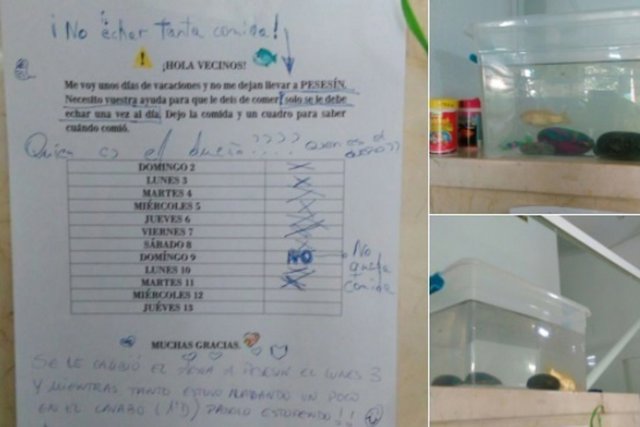 ¡No echar tanta comida!
¡HOLA VECINOS!
Me voy unos días de vacaciones y no me dejan llevar a PESESÍN.
Necesito vuestra ayuda para que le deis de comer, solo se le debe
echar una vez al día. Dejo la comida y un cuadro para saber
cuándo comió.
Quien es el dueño????
Quien es el dueño??
DOMINGO 2
LUNES 3 X
MARTES 4 X
MIÉRCOLES 5 X
JUEVES 6 X
VIERNES 7 X
SÁBADO 8 X
DOMINGO 9 NO No queda comida
LUNES 10
MARTES 11 X
MIÉRCOLES 12
JUEVES 13
MUCHAS GRACIAS.
SE LE CAMBIÓ EL AGUA A PESESÍN EL LUNES 3
Y MIENTRAS TANTO ESTUVO NADANDO UN POCO
EN EL LAVABO (1ºD) PASOLO ESTUPENDO!!